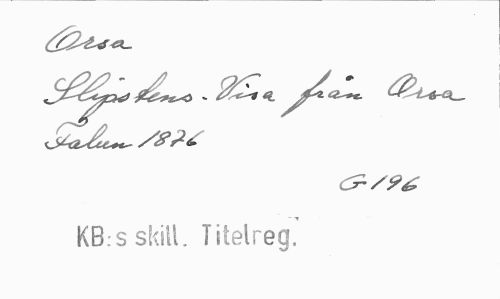 Orsa
Slipstens-Visa från Orsa
Falun 1876
G 196
KB:s skill. Titelreg.